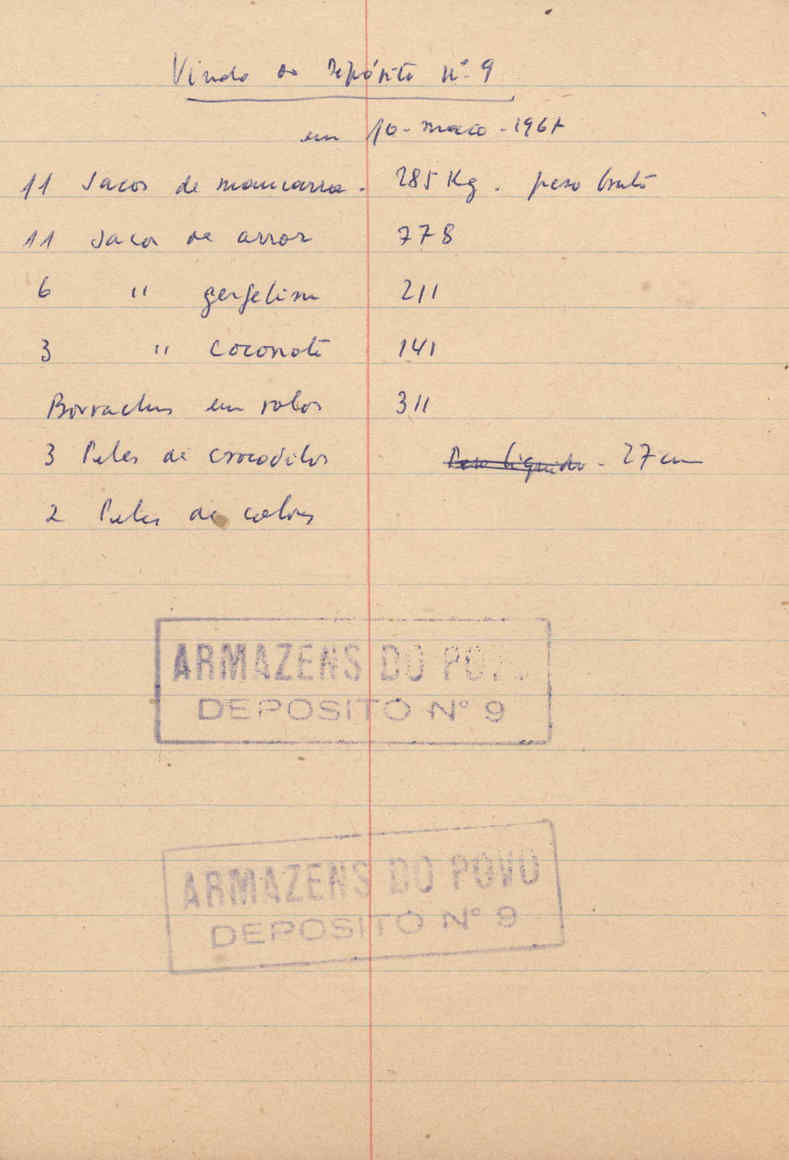 Vindo do Depósito nº 9
em 10 - março - 196
11 Sacos de mancarra - 285 Kg. peso bruto
11 Sacos de arroz 778
6 " gergelim 211
3 " coconote 141
Borrachas em rolos 311
3 Peles de crocodilos Peso líquido - 27 cm
2 Peles de cabras
ARMAZENS DO POVO
DEPOSITO Nº 9
ARMAZENS DO POVO
DEPOSITO Nº 9